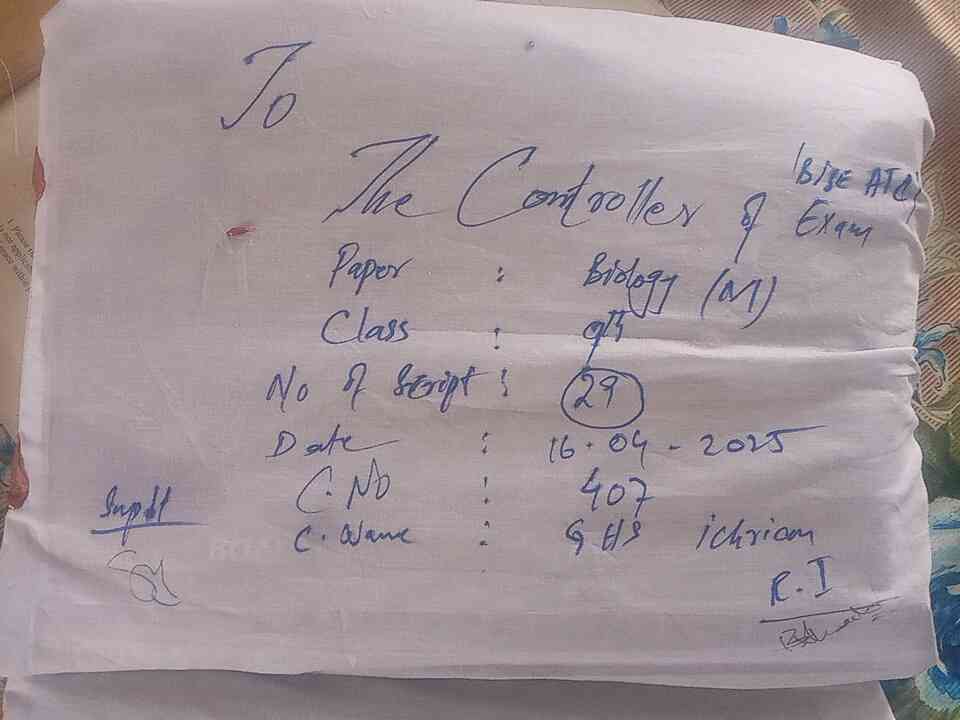 To
The Controller of Exam
Bise ATC
Paper : Biology (M)
Class : 9th
No of Script : 29
Date : 16-04-2025
C.No : 407
C.Name : GHS ichriam
Supdt
R.I